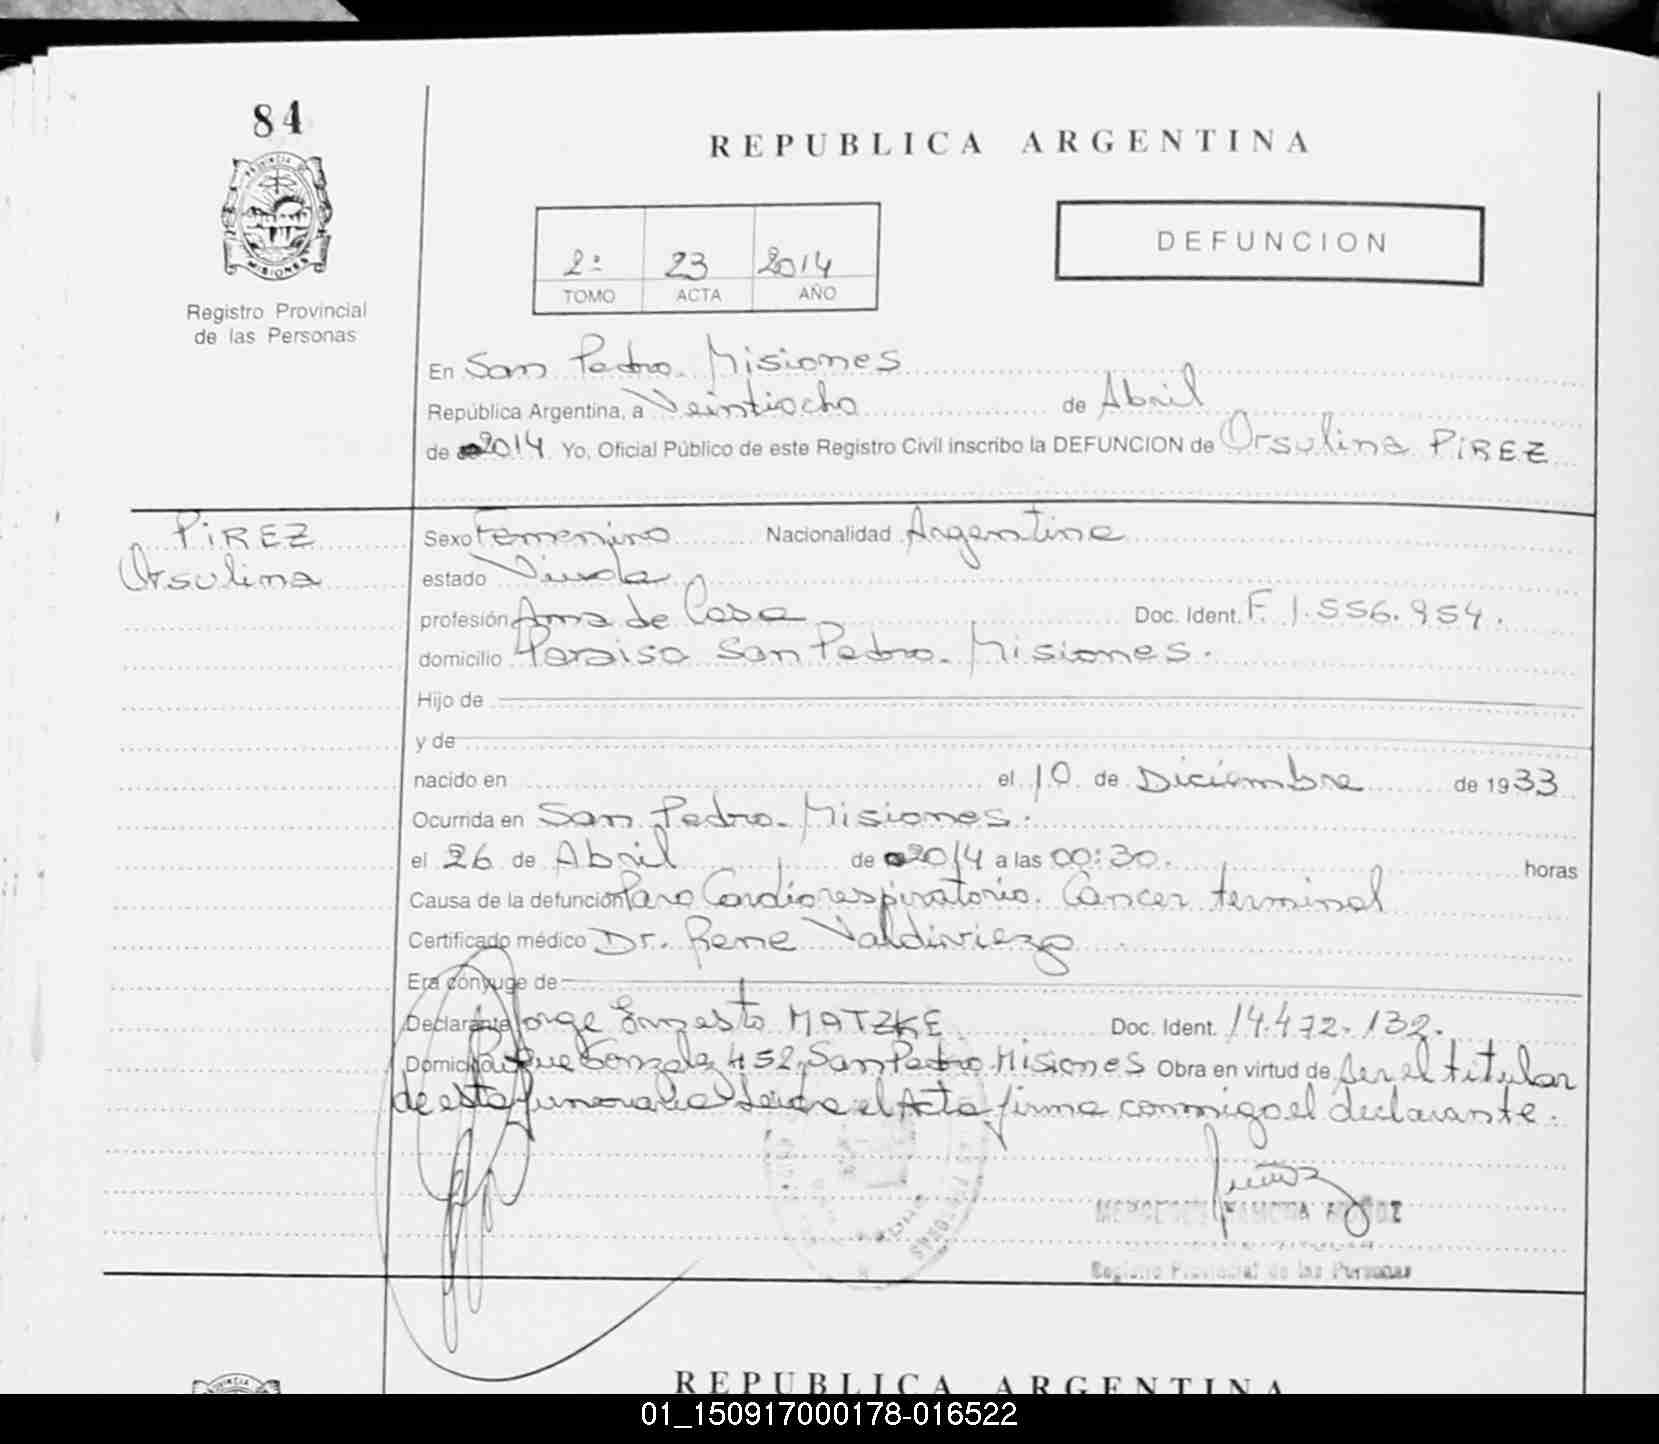 84
REPUBLICA ARGENTINA
PROVINCIA DE
MISIONES
Registro Provincial
de las Personas
DEFUNCION
2º 23 2014
TOMO ACTA AÑO
En San Pedro. Misiones
República Argentina, a Veintiocho de Abril
de 2014 Yo, Oficial Público de este Registro Civil inscribo la DEFUNCION de Orsulina PIREZ
PIREZ
Orsulina
Sexo Femenino Nacionalidad Argentina
estado Viuda
profesión Ama de Casa Doc. Ident. F. 1.556.954.
domicilio Paraiso San Pedro. Misiones.
Hijo de
y de
nacido en el 10 de Diciembre de 1933
Ocurrida en San Pedro. Misiones.
el 26 de Abril de 2014 a las 00:30. horas
Causa de la defunción Paro Cardiorespiratorio. Cancer terminal
Certificado médico Dr. Rene Valdiviezo
Era cónyuge de
Declarante Jorge Ernesto MATZKE Doc. Ident. 14.472.132.
Domicilio Roque Gonzalez 452, San Pedro Misiones Obra en virtud de ser el titular
de esta funeraria Leida el Acta firma conmigo el declarante.
MERCEDES RAMONA MUÑOZ
Registro Provincial de las Personas
REPUBLICA ARGENTINA
01_150917000178-016522